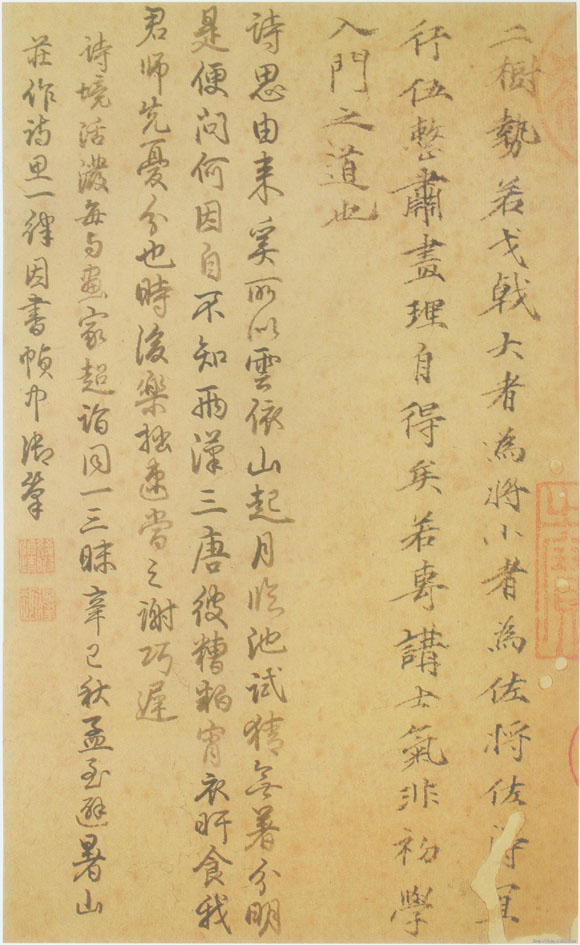 二樹勢若戈戟大者為將小者為佐將佐得宜
行伍整肅畫理自得矣若專講士氣非初學
入門之道也
詩思由来奚所以雲依山起月臨池試猜無著分明
是便问何因自不知兩漢三唐彼糟粕宵衣旰食我
君師先憂分也時後樂拙速當之謝巧遲
詩境活潑每与畫家超詣同一三昧辛巳秋孟至避暑山
莊作詩思一律因書幀中御筆